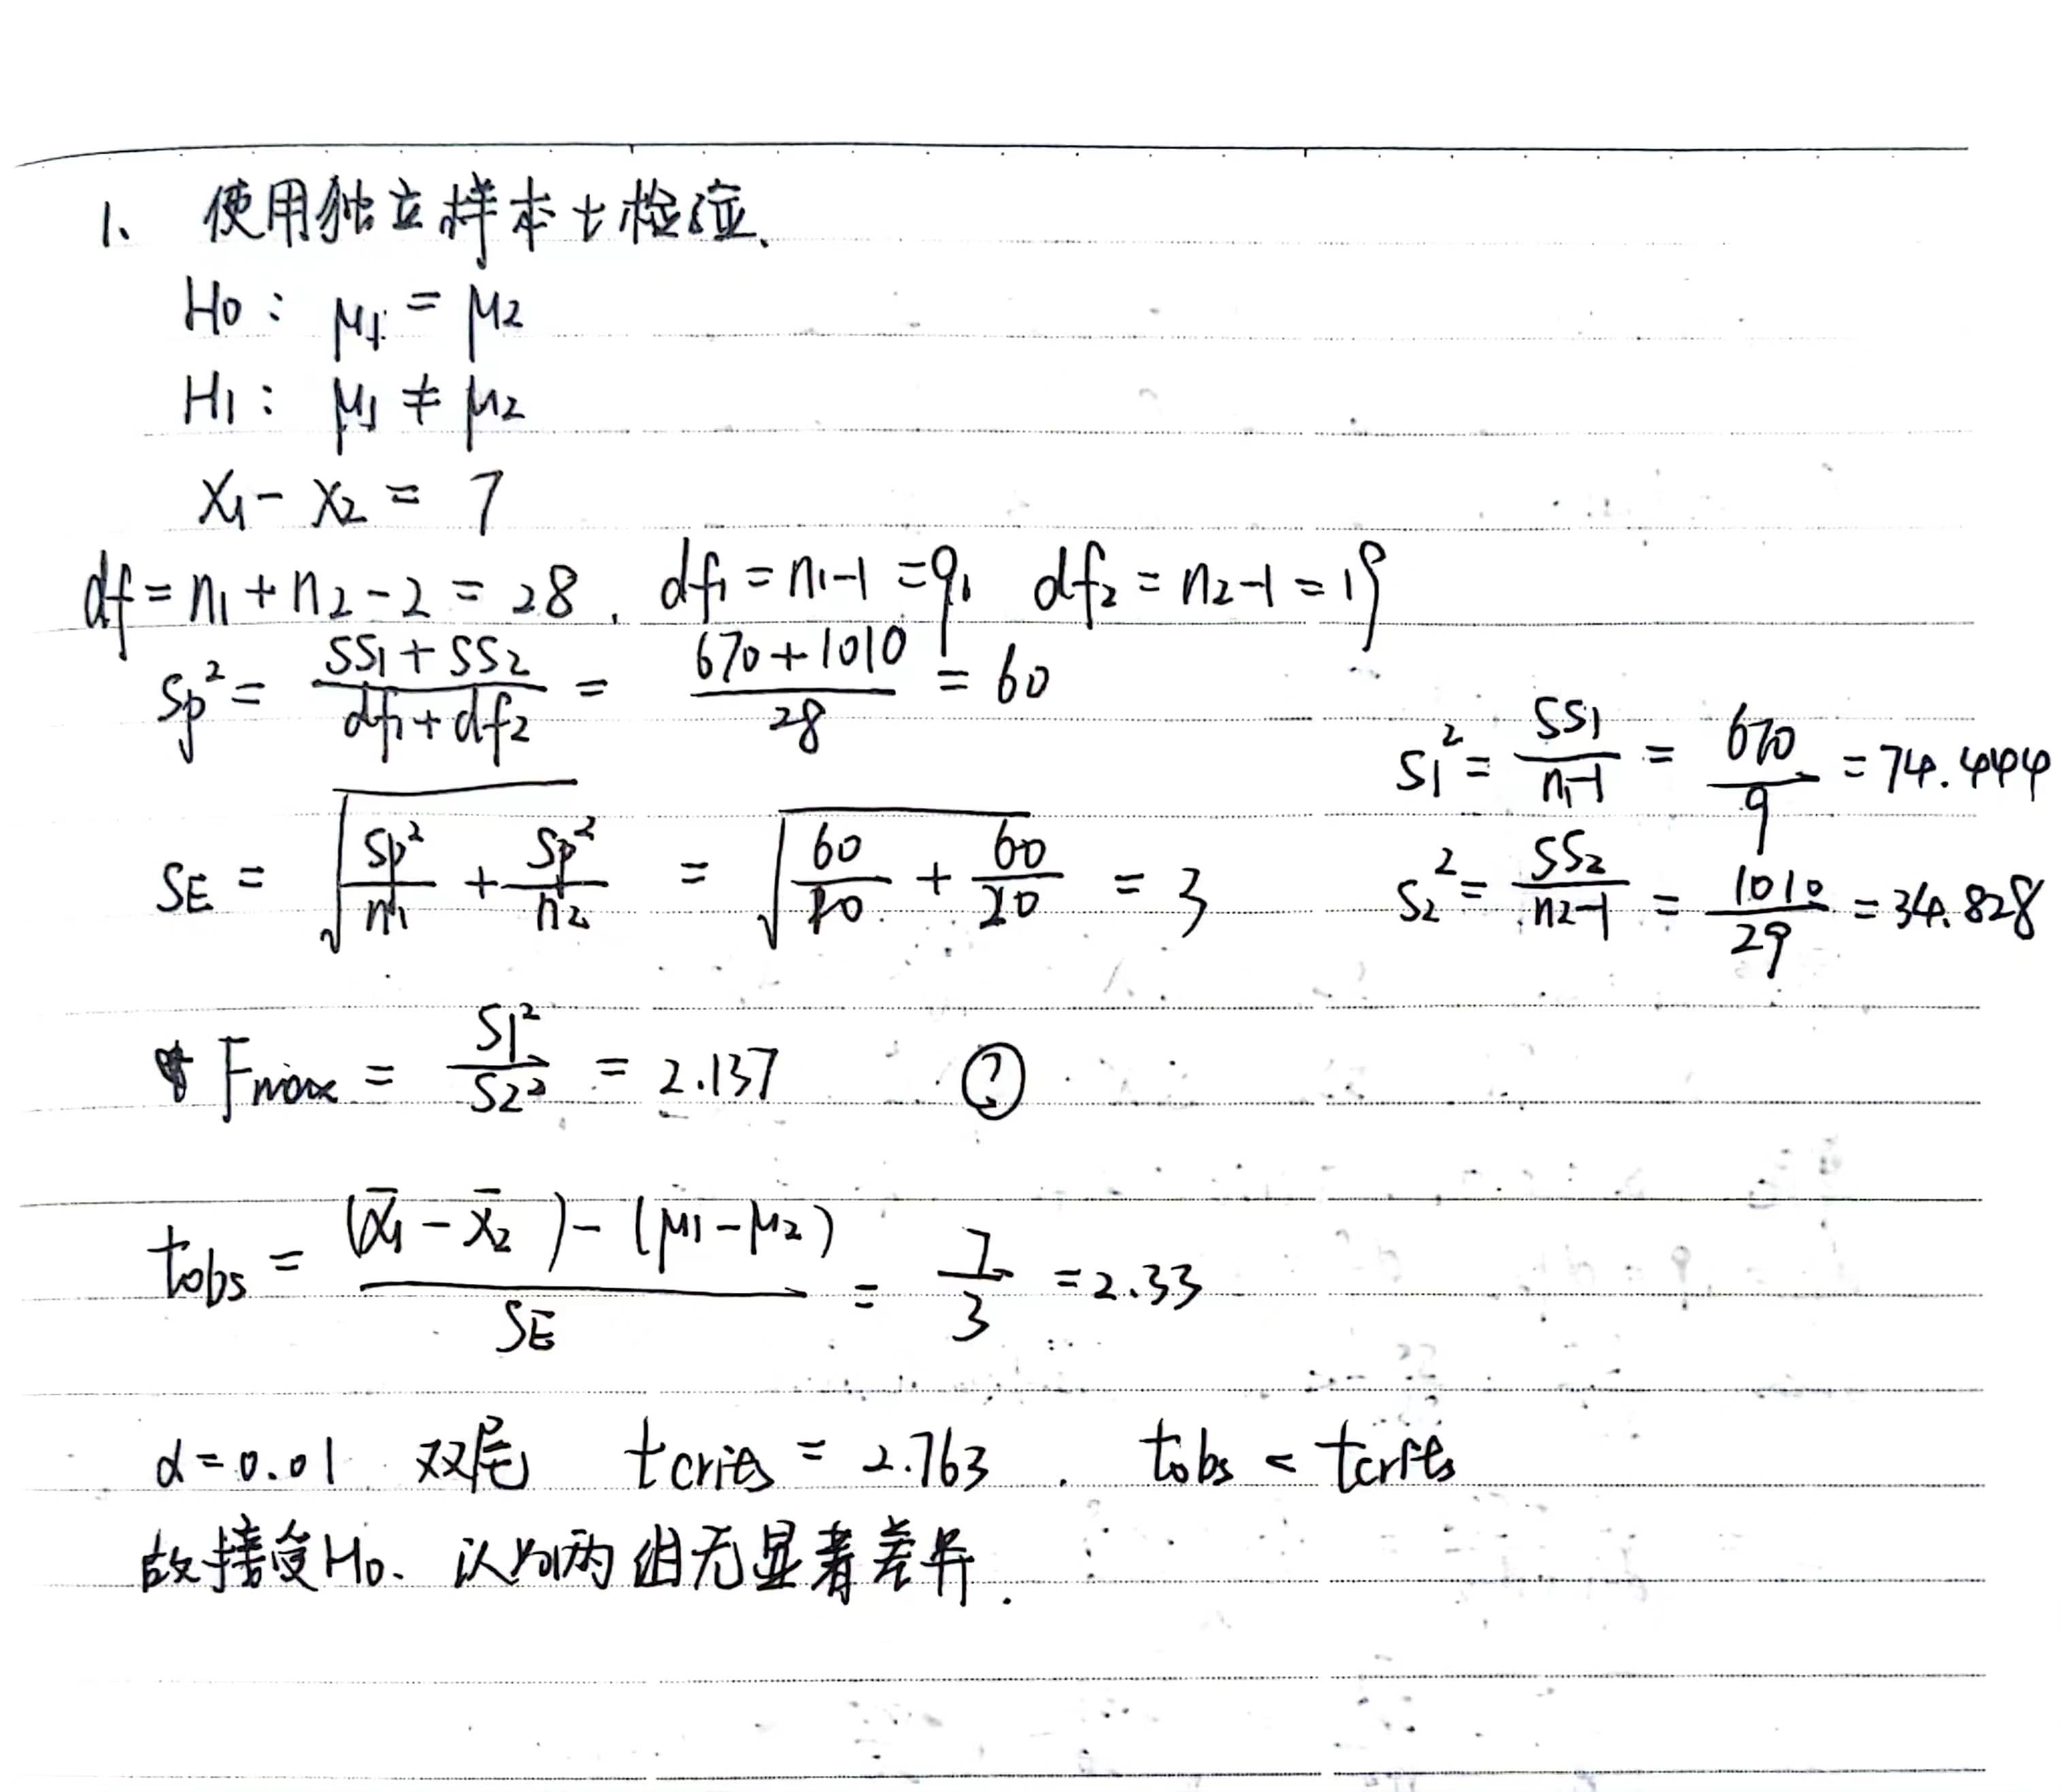 1、使用独立样本t检验、
H0： μ1 = μ2
H1： μ1 ≠ μ2
X1 - X2 = 7
df = n1 + n2 - 2 = 28 . df1 = n1-1 = 9, df2 = n2-1 = 19
Sp² = (SS1 + SS2)/(df1 + df2) = (670+1010)/28 = 60
S1² = SS1/(n1-1) = 670/9 = 74.444
SE = √(Sp²/n1 + Sp²/n2) = √(60/10 + 60/20) = 3
S2² = SS2/(n2-1) = 1010/29 = 34.828
Fmax = S1²/S2² = 2.137 ?
tobs = ((x̄1 - x̄2) - (μ1 - μ2))/SE = 7/3 = 2.33
α = 0.01 双尾 tcrits = 2.763 . tobs < tcrits
故接受H0、认为两组无显著差异.